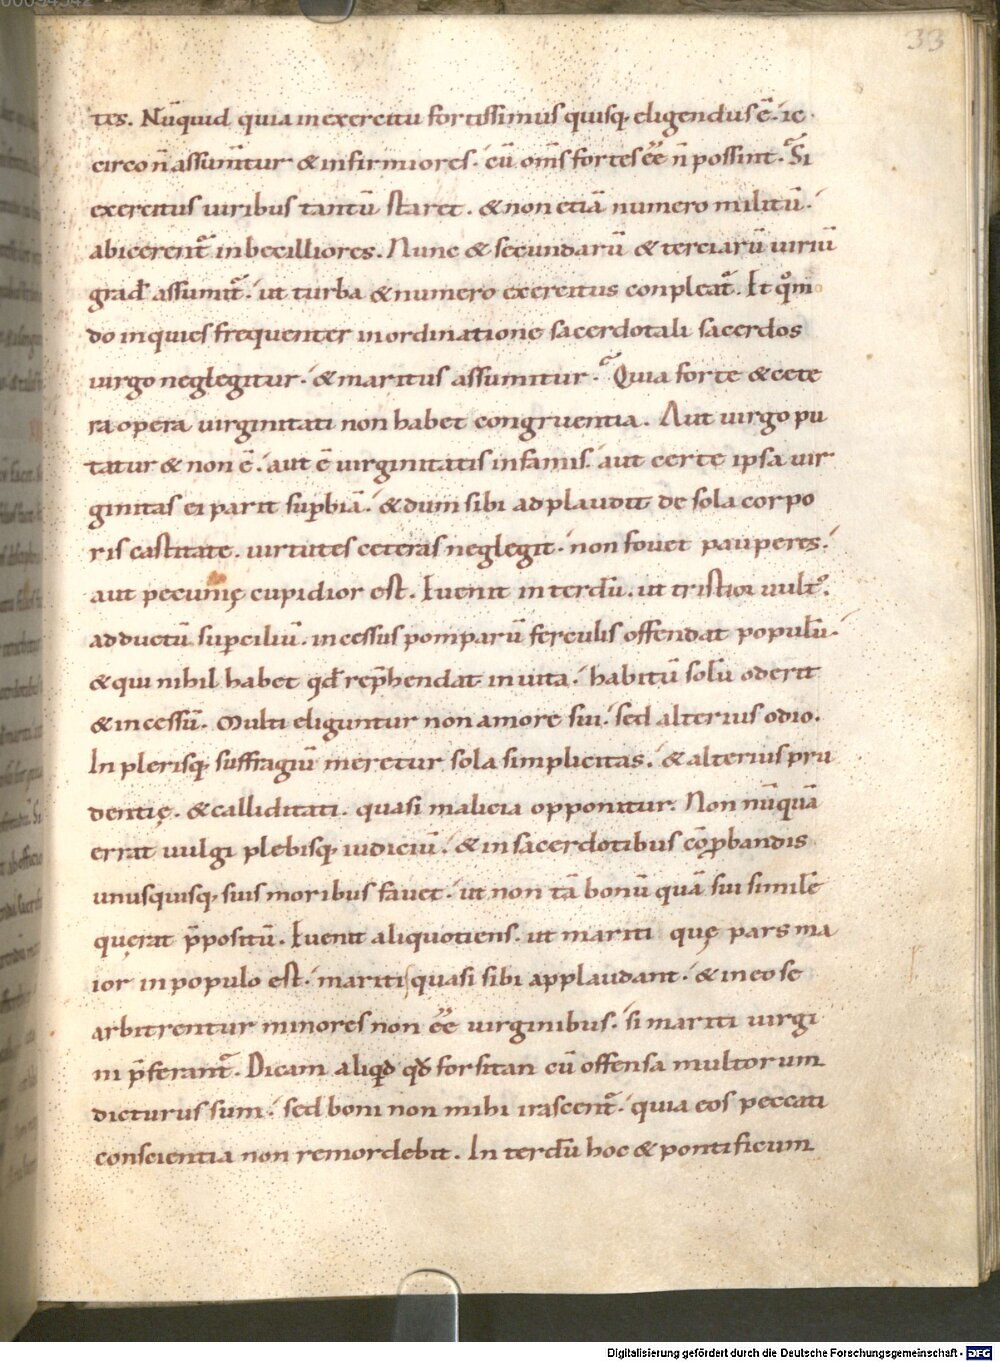 33
tes. Nūquid quia in exercitu fortissimus quisq; eligendus ē. ic
circo n̄ assum̄tur & infirmiores. cū om̄s fortes ēē n̄ possint. Si
exercitus uiribus tantū staret. & non etiā numero militū.
abicerent᷑ inbecilliores. Nunc & secundarū & terciarū uiriū
grad᷒ assumit᷑. ut turba & numero exercitus conpleat᷑. Et qͦm
do inquies frequenter in ordinatione sacerdotali sacerdos
uirgo neglegitur. & maritus assumitur. Quia forte & cete
ra opera uirginitati non habet congruentia. Aut uirgo pu
tatur & non ē. aut ē uirginitatis infamis. aut certe ipsa uir
ginitas ei parit sup̄biā. & dum sibi adplaudit de sola corpo
ris castitate. uirtutes ceteras neglegit. non fouet pauperes.
aut pecunię cupidior est. Euenit interdū. ut tristior uult᷒.
adductū sup̄ciliū. incessus pomparū ferculis offendat populū.
& qui nihil habet qd̄ rep̄hendat in uita. habitū solū oderit
& incessū. Multi eliguntur non amore sui. sed alterius odio.
In plerisq; suffragiū meretur sola simplicitas. & alterius pru
dentię. & calliditati. quasi malicia opponitur. Non nūquā
errat uulgi plebisq; iudiciū. & in sacerdotibus cōp̱bandis
unusquisq; suis moribus fauet. ut non tā bonū quā sui similē
quęrat p̄positū. Euenit aliquotiens. ut mariti quę pars ma
ior in populo est. mariti quasi sibi applaudant. & in eo se
arbitrentur minores non ēē uirginibus. si mariti uirgi
ni p̄ferant᷑. Dicam aliqd̄ qd̄ forsitan cū offensa multorum
dicturus sum. sed boni non mihi irascent᷑. quia eos peccati
conscientia non remordebit. Interdū hoc & pontificum
Digitalisierung gefördert durch die Deutsche Forschungsgemeinschaft - DFG